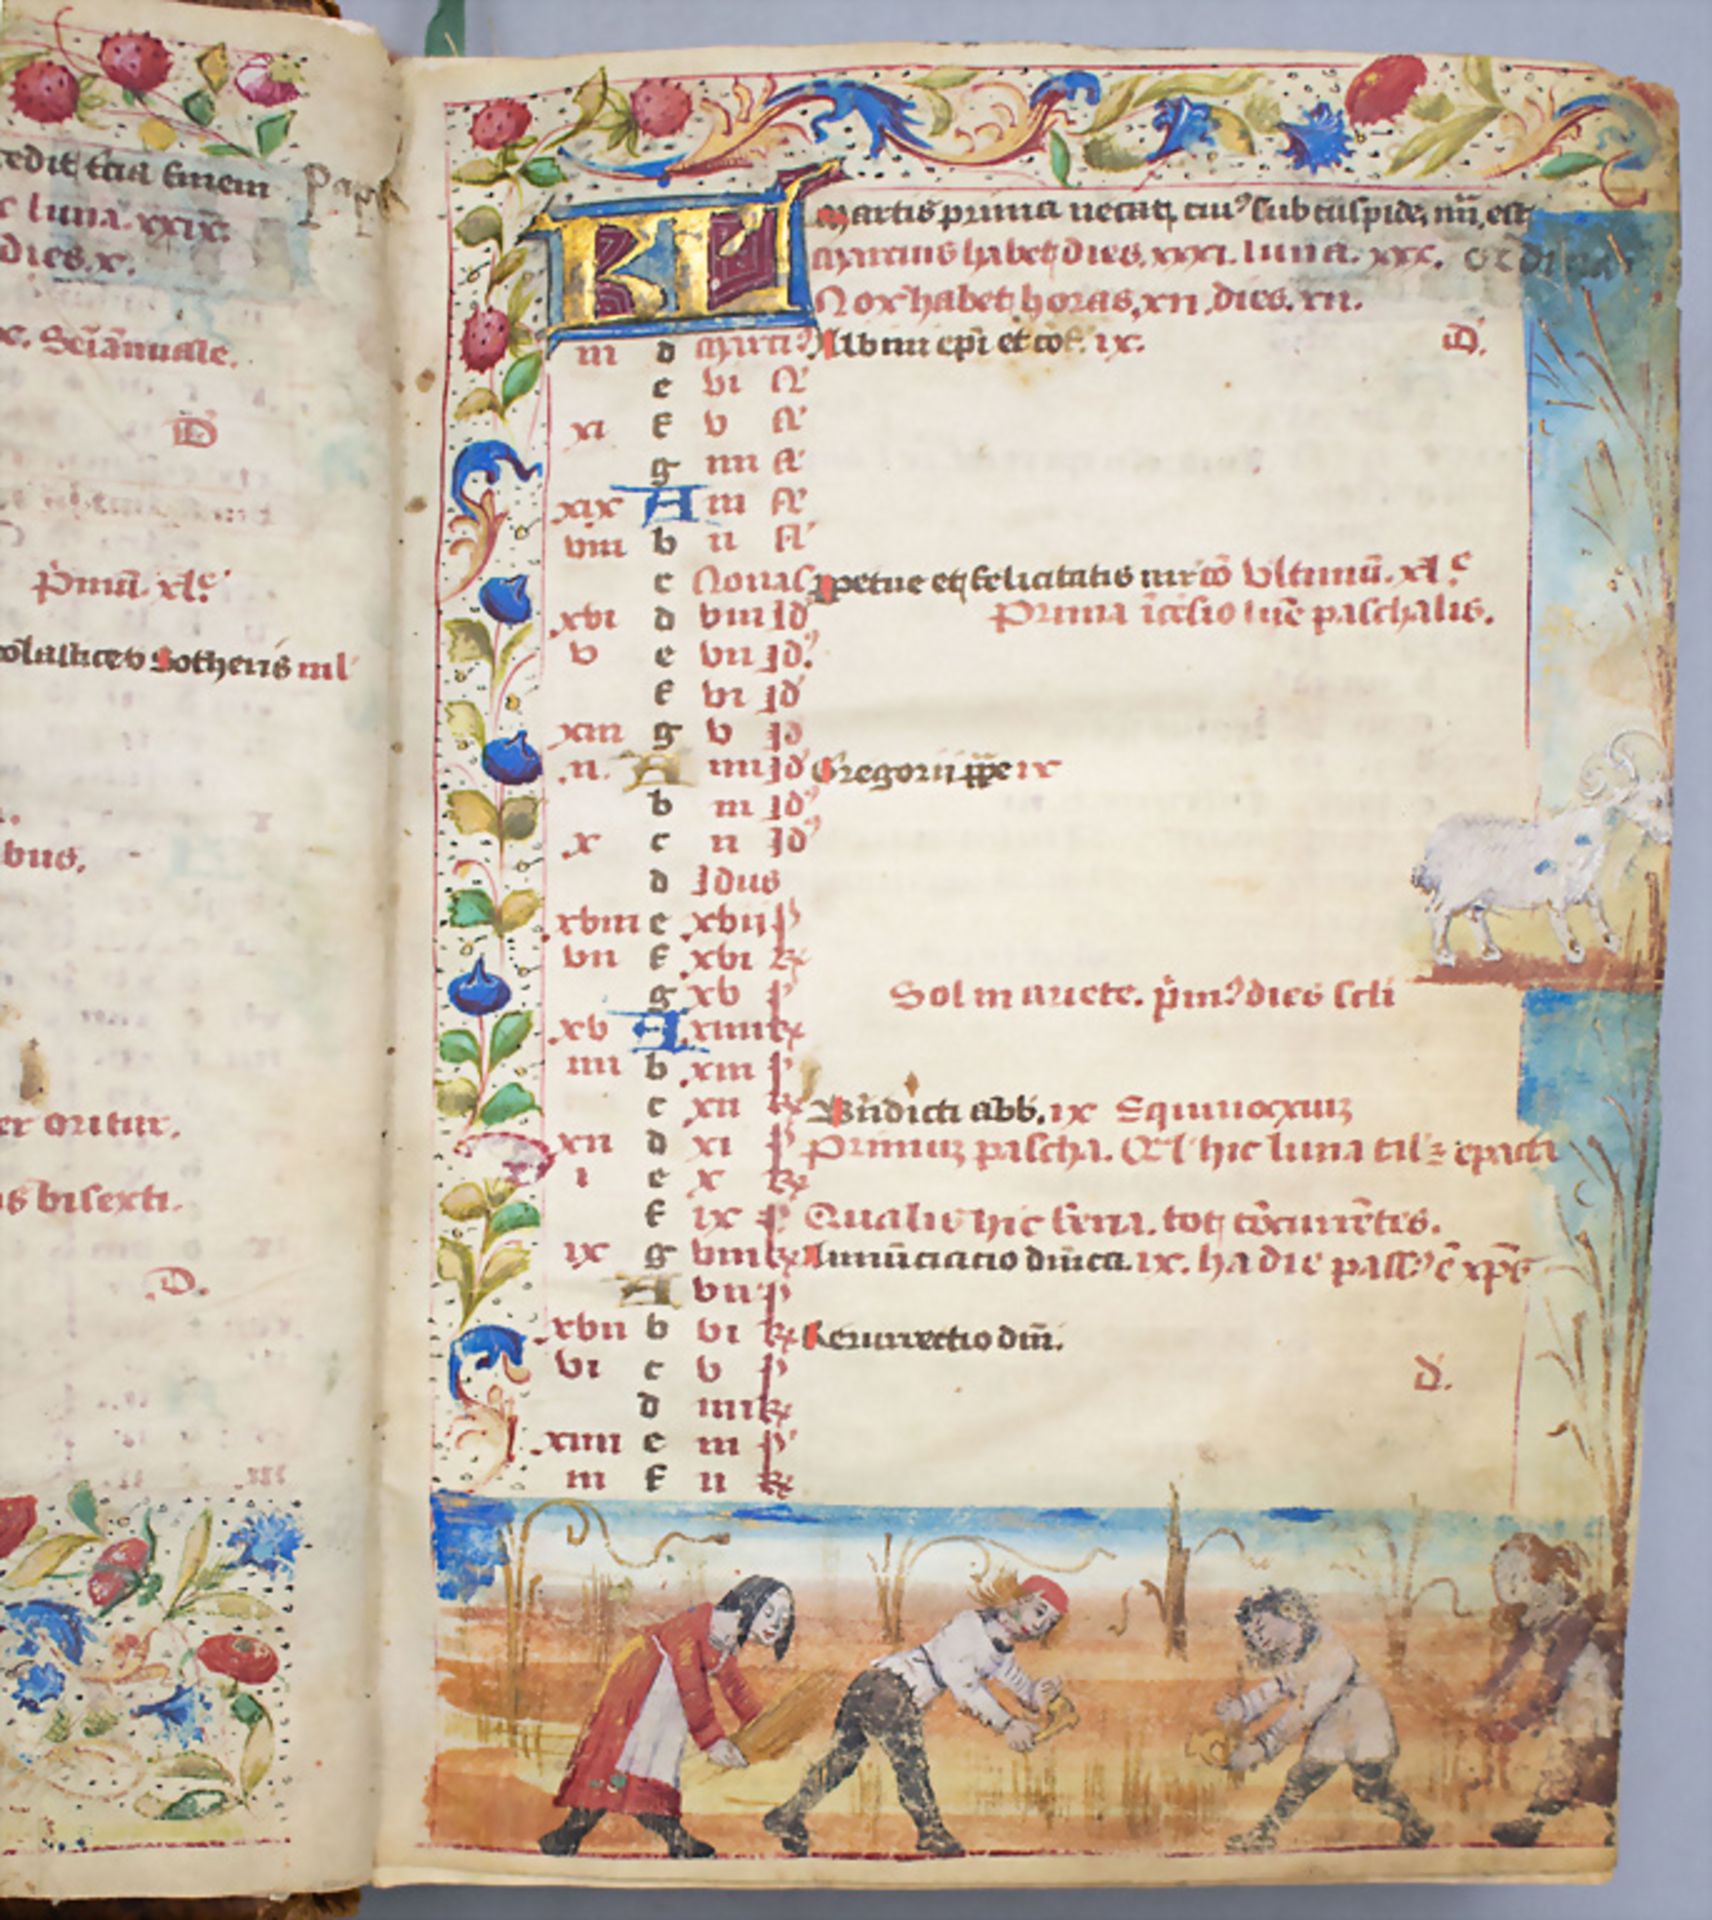 cedit tcia finem
papa
c luna. xxix.
dies. x.
x. Sciānuale.
D
Pmū. xl.
colastice v Sotheris ml
.
bus.
er oritur.
s bisexti.
.D.
KL Martis prima necat, cui' sub cuspide, iiii, est
Marcius habet dies. xxxi. luna. xxx. ordinar
Nox habet horas, xii, dies. xii.
iii d Marti' Albini epi et cof. ix. D.
e vi N'
xi f v N'
g iiii N'
xix A iii N'
viii b ii N'
c Nonas ppetue et felicitatis mrō Ultimū. xl.
xvi d viii Id' Prima icēsio lune paschalis.
v e vii Id.'
f vi Id'
xiii g v Id
.ii. A iiii Id' Gregorii ppe ix
b iii Id'
.x c ii Id'
d Idus
.xviii e .xvii k
vii f .xvi kl
g xv k
xv A .xiiii kl
iiii b .xiii k
c xii kl Bndicti abb. ix Equinoxiuz
xii d xi k Primuz pascha. Ql' hic luna tal' epacti
i e x kl
f ix k Qualis hic feria. tot cōcurrētes.
ix g viii kl Annūciacio dnica. ix. ha die pass' ē xps
A vii k
.xvii b vi kl Resurrectio dni.
vi c v k d.
d iiii kl
.xiiii e iii k
iii f ii kl